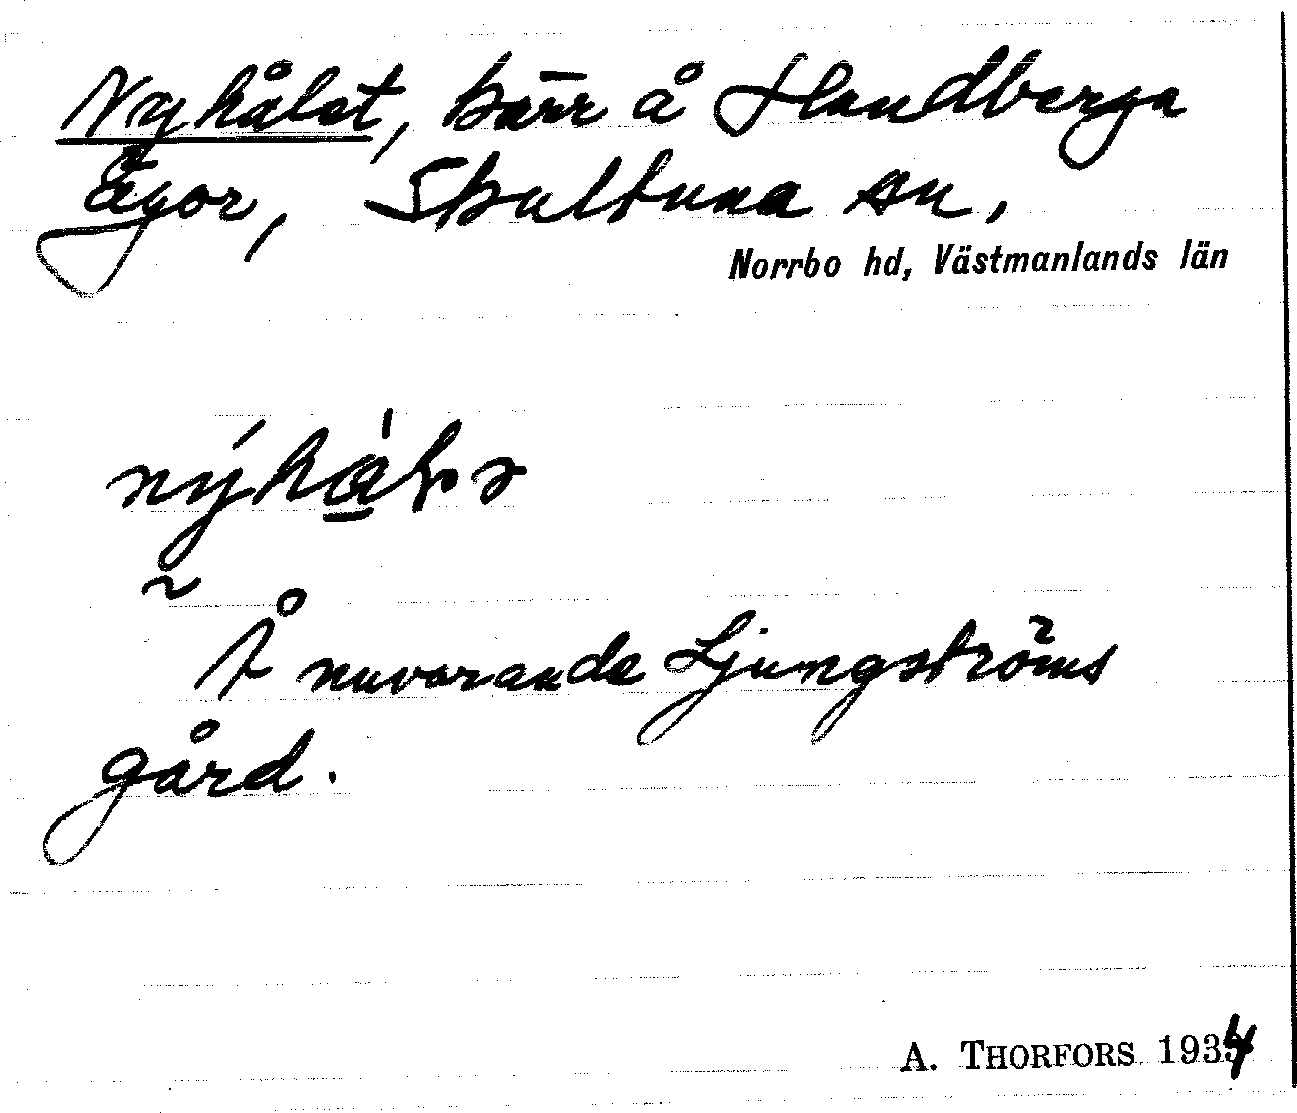 Nyhålet, kärr å Handberga
ägor, Skultuna sn,
Norrbo hd, Västmanlands län
Å nuvarande Ljungströms
gård.
A. THORFORS 1934